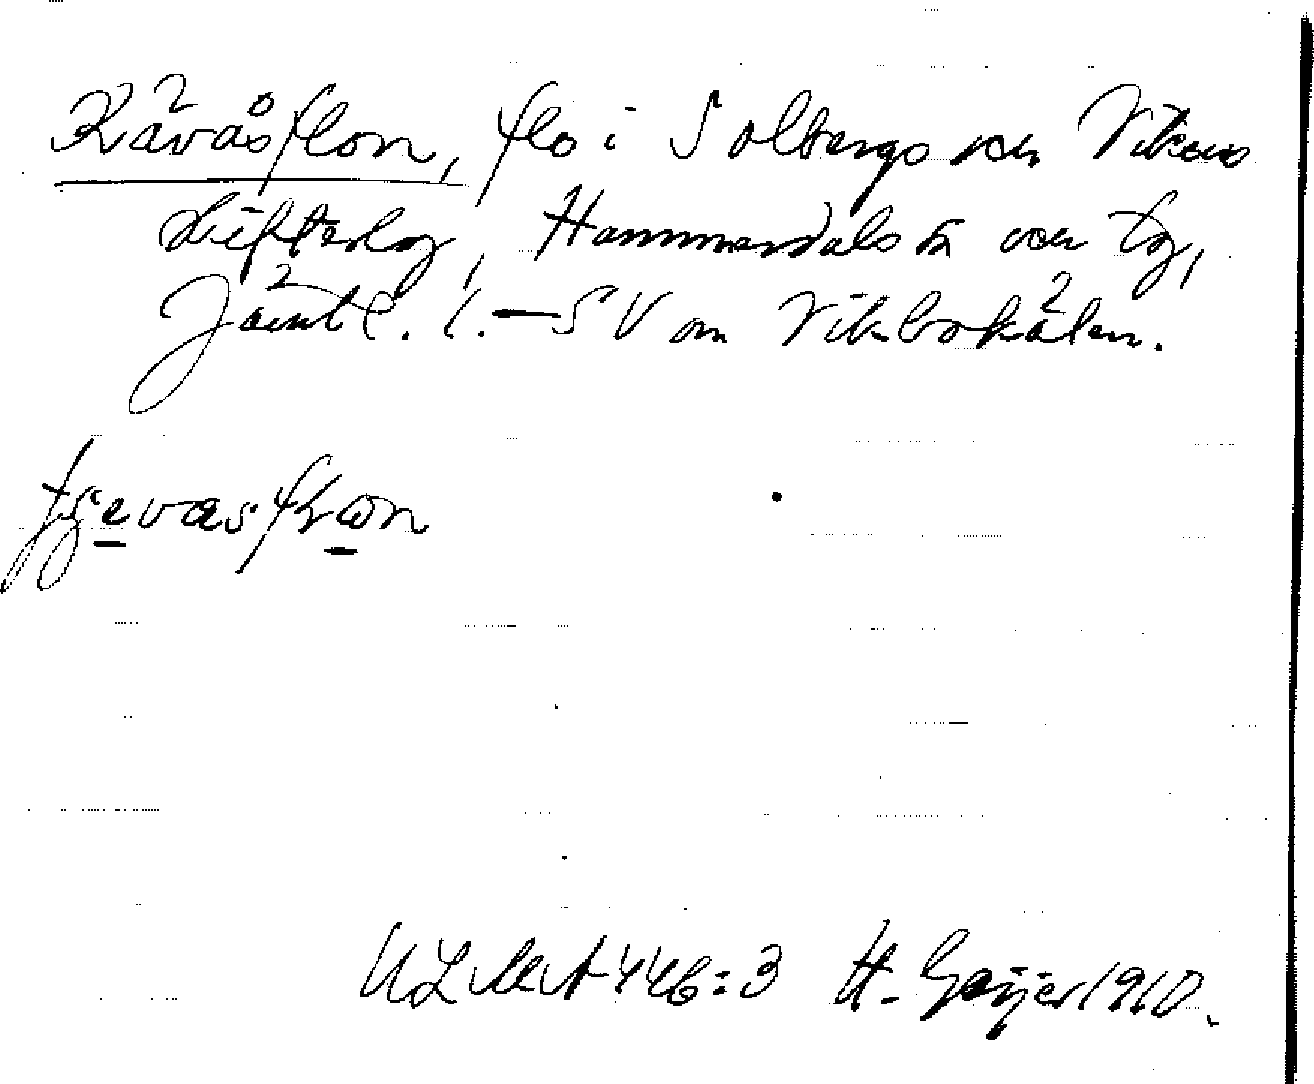 Kävåsflon, flo i Solbergs och Vikens
skifteslag, Hammerdals sn och tg,
Jämtl. l. — SV om Viksbokälen.
UL MA 446:3 H. Geijer 1910.